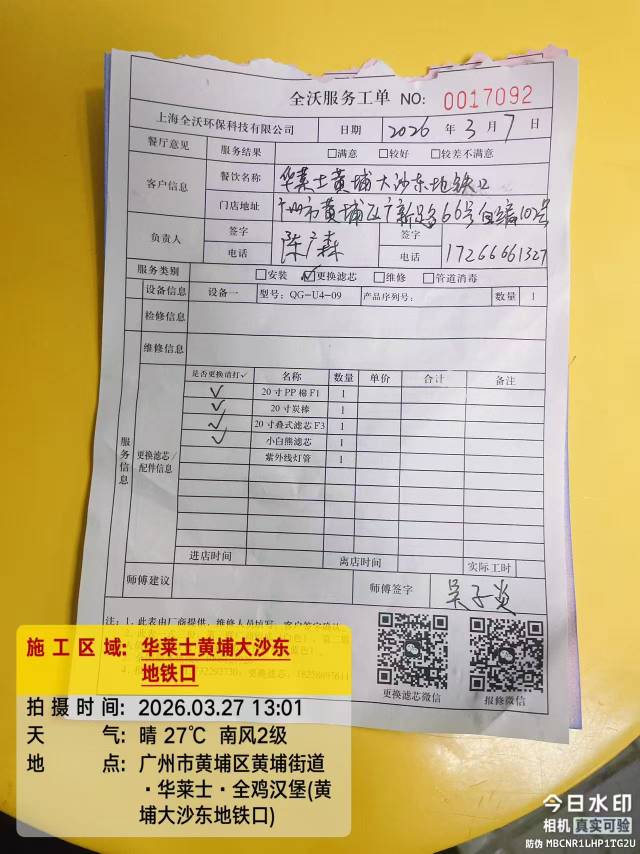 全沃服务工单 NO: 0017092
上海全沃环保科技有限公司 日期 2026 年 3 月 7 日
餐厅意见 服务结果 □满意 □较好 □较差不满意
客户信息 餐饮名称 华莱士黄埔大沙东地铁口
门店地址 广州市黄埔区广新路66号自编10号
负责人 签字 陈广森 签字
电话 电话 17266661327
服务类别 □安装 ☑更换滤芯 □维修 □管道消毒
设备信息 设备一 型号: QG-U4-09 产品序列号: 数量 1
检修信息
维修信息
服务信息 更换滤芯/配件信息
是否更换请打✓ 名称 数量 单价 合计 备注
✓ 20寸PP棉F1 1
✓ 20寸炭棒 1
✓ 20寸叠式滤芯F3 1
✓ 小白熊滤芯 1
紫外线灯管 1
进店时间 离店时间 实际工时
师傅建议 师傅签字
注: 1、此表由厂商提供，维修人员填写，客户签字确认
更换滤芯微信 报修微信
施工区域: 华莱士黄埔大沙东
地铁口
拍摄时间: 2026.03.27 13:01
天气: 晴 27℃ 南风2级
地点: 广州市黄埔区黄埔街道
·华莱士·全鸡汉堡(黄
埔大沙东地铁口)
今日水印
相机 真实可验
防伪 MBCNR1LHP1TG2U